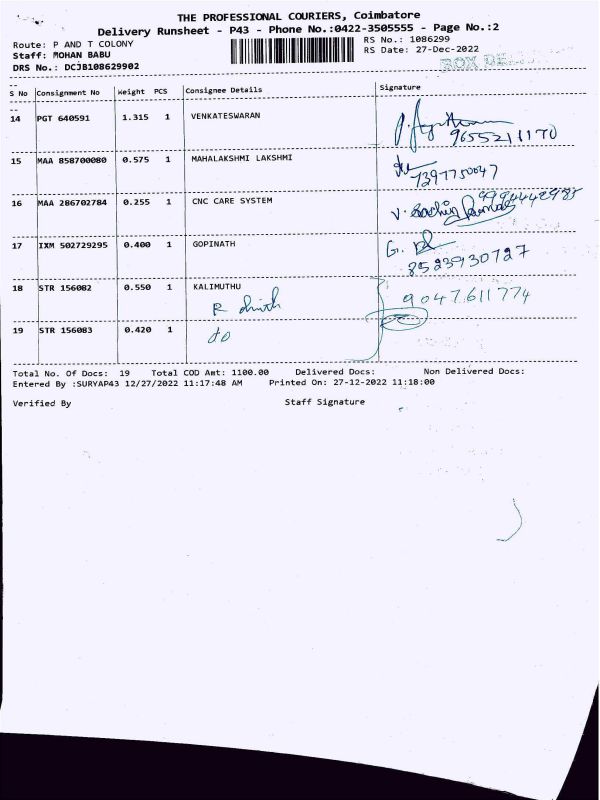 THE PROFESSIONAL COURIERS, Coimbatore
Delivery Runsheet - P43 - Phone No.:0422-3505555 - Page No.:2
Route: P AND T COLONY
RS No.: 1086299
Staff: MOHAN BABU
RS Date: 27-Dec-2022
DRS No.: DCJB108629902
BOX
S No Consignment No Weight PCS Consignee Details Signature
14 PGT 640591 1.315 1 VENKATESWARAN
9655211170
15 MAA 858700080 0.575 1 MAHALAKSHMI LAKSHMI
7397750047
16 MAA 286702784 0.255 1 CNC CARE SYSTEM
9994442985
17 IXM 502729295 0.400 1 GOPINATH
8523930727
18 STR 156082 0.550 1 KALIMUTHU
9047611774
19 STR 156083 0.420 1 do
Total No. Of Docs: 19 Total COD Amt: 1100.00 Delivered Docs: Non Delivered Docs:
Entered By :SURYAP43 12/27/2022 11:17:48 AM Printed On: 27-12-2022 11:18:00
Verified By Staff Signature